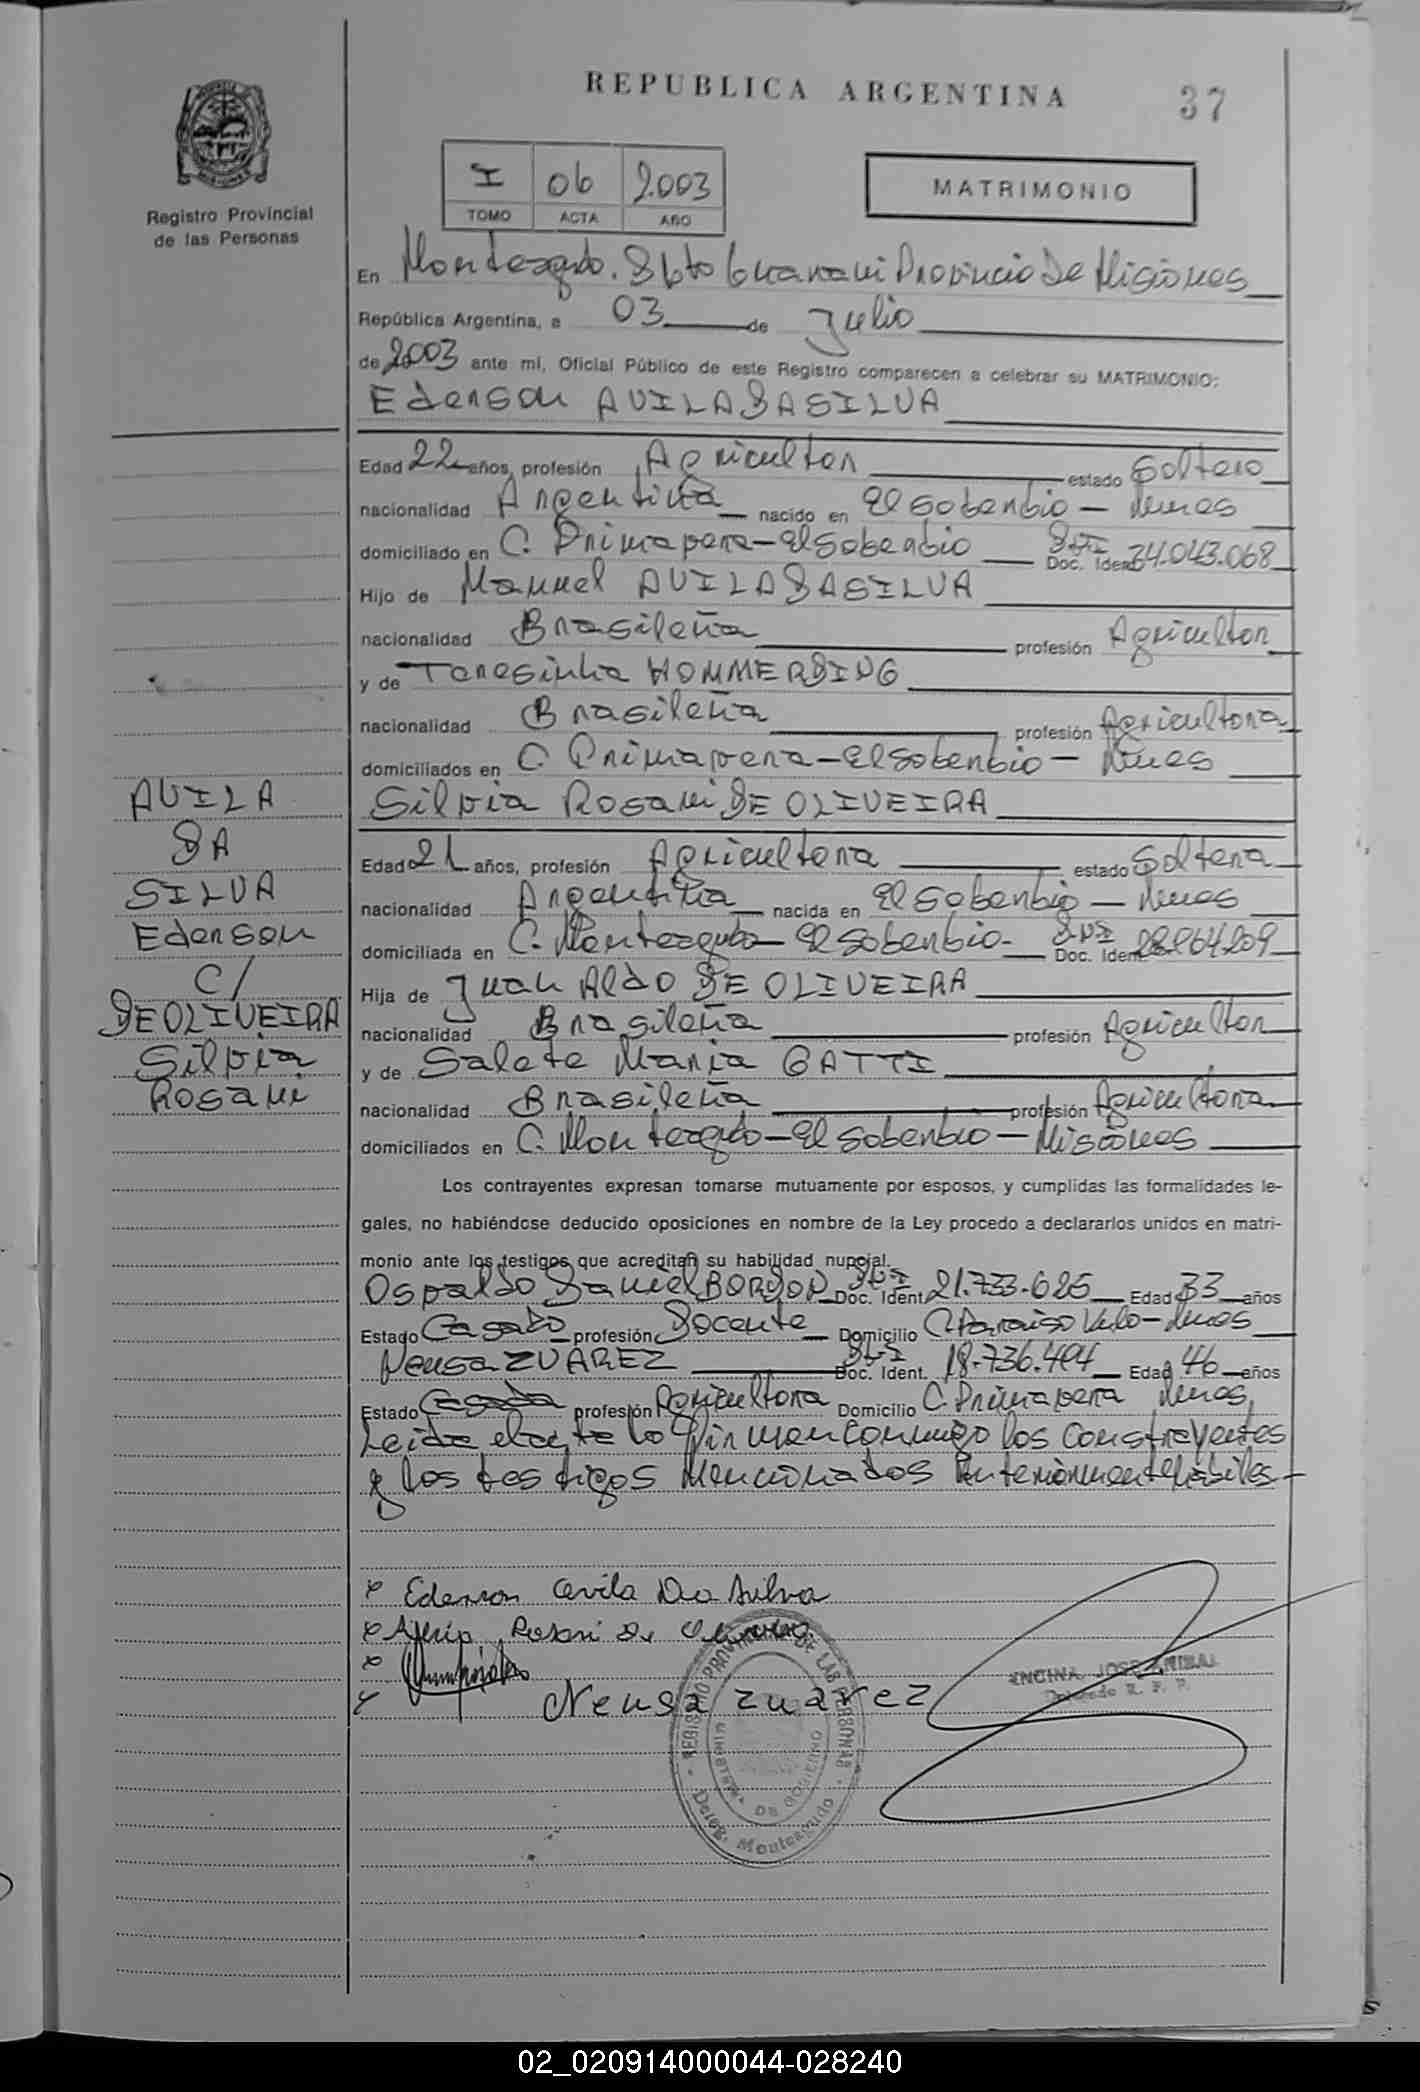 REPUBLICA ARGENTINA
37
Registro Provincial
de las Personas
I 06 2.003
TOMO ACTA AÑO
MATRIMONIO
En Monteagudo. Dpto Guarani Provincia De Misiones
República Argentina, a 03 de Julio
de 2.003 ante mí, Oficial Público de este Registro comparecen a celebrar su MATRIMONIO:
Ederson AVILA DA SILVA
Edad 22 años, profesión Agricultor estado Soltero
nacionalidad Argentina nacido en El Soberbio - Mnes
domiciliado en C. Primavera - El Soberbio DNI Doc. Ident 34.043.068
Hijo de Manuel AVILA DA SILVA
nacionalidad Brasileña profesión Agricultor
y de Teresinha HOMMERDING
nacionalidad Brasileña profesión Agricultora
domiciliados en C. Primavera - El Soberbio - Mnes
Silvia Rosani DE OLIVEIRA
Edad 21 años, profesión Agricultora estado Soltera
nacionalidad Argentina nacida en El Soberbio - Mnes
domiciliada en C. Monteagudo - El Soberbio - DNI Doc. Ident.
Hija de Juan Aldo DE OLIVEIRA
nacionalidad Brasileña profesión Agricultor
y de Salete Maria GATTI
nacionalidad Brasileña profesión Agricultora
domiciliados en C. Monteagudo - El Soberbio - Misiones
AVILA
DA
SILVA
Ederson
C/
DE OLIVEIRA
Silvia
Rosani
Los contrayentes expresan tomarse mutuamente por esposos, y cumplidas las formalidades le-
gales, no habiéndose deducido oposiciones en nombre de la Ley procedo a declararlos unidos en matri-
monio ante los testigos que acreditan su habilidad nupcial.
Osvaldo Daniel BORDON DNI Doc. Ident. 21.733.626 Edad 33 años
Estado Casado profesión Docente Domicilio C. Paraiso Km10 - Mnes
Neusa ZUAREZ DNI Doc. Ident. 18.736.494 Edad 46 años
Estado Casada profesión Agricultora Domicilio C. Primavera Mnes
Leida el acta lo firman conmigo los Constrayentes
y los testigos Mencionados Anteriormente habiles
x Ederson Avila Da Silva
x Silvia Rosani De Oliveira
x
x Neusa zuarez
ENCINA JOSE ANIBAL
Delegado R. P. P.
REGISTRO PROVINCIAL DE LAS PERSONAS
MINISTERIO DE GOBIERNO
Deleg. Monteagudo
02_020914000044-028240